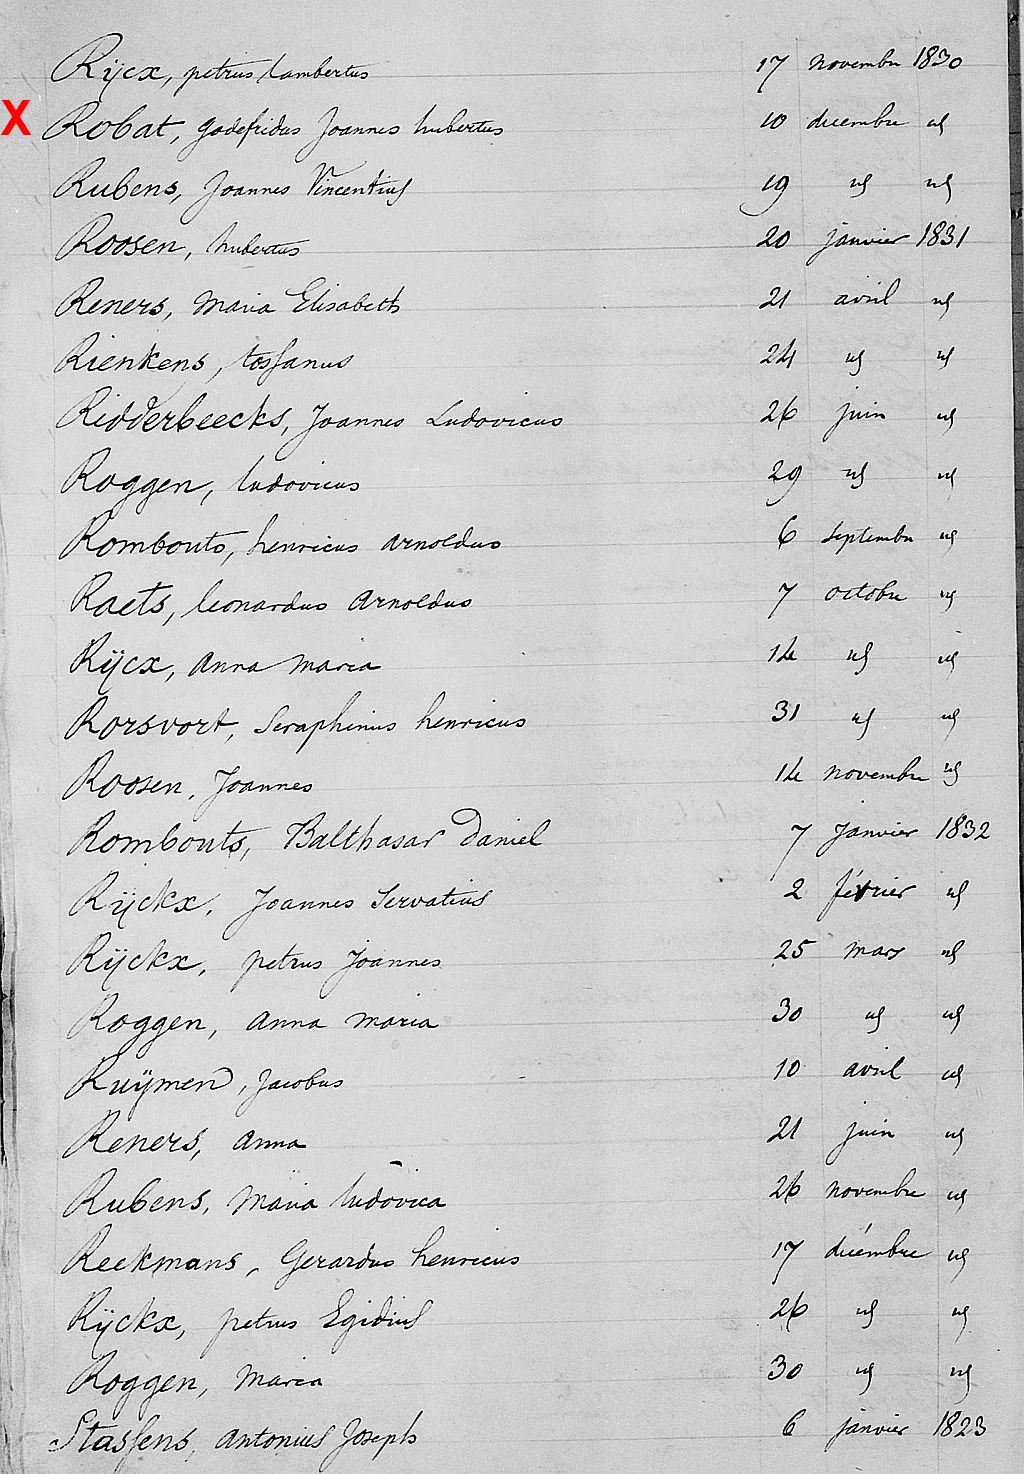 Rÿcx, petrus Lambertus 17 novembre 1830
X Robat, godefridus Joannes hubertus 10 decembre id
Rubens, Joannes Vincentius 19 id id
Roosen, hubertus 20 janvier 1831
Reners, Maria Elisabeth 21 avril id
Rienkens, tossanus 24 id id
Ridderbeecks, Joannes Ludovicus 26 juin id
Roggen, ludovicus 29 id id
Rombouts, henricus arnoldus 6 septembre id
Raets, leonardus arnoldus 7 octobre id
Rÿcx, anna maria 14 id id
Rorsvort, Seraphinus henricus 31 id id
Roosen, Joannes 14 novembre id
Rombouts, Balthasar Daniel 7 Janvier 1832
Rÿckx, Joannes Servatius 2 février id
Rÿckx, petrus Joannes 25 mars id
Roggen, anna maria 30 id id
Ruÿmen, Jacobus 10 avril id
Reners, anna 21 juin id
Rubens, Maria ludovica 26 novembre id
Reekmans, Gerardus henricus 17 décembre id
Rÿckx, petrus Egidius 26 id id
Roggen, Maria 30 id id
Stassens, antonius Joseph 6 janvier 1823